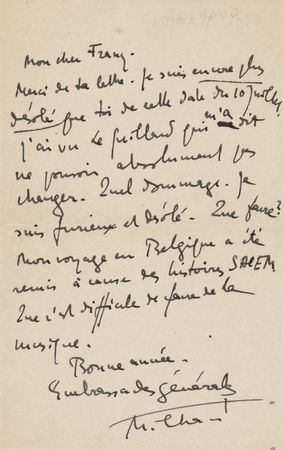 Mon cher Franz.
Merci de ta lettre. Je suis encore plus
désolé que toi de cette date du 10 Juillet
J'ai vu Le Guilland qui m'a dit
ne pouvoir absolument pas
changer. Quel dommage. Je
suis furieux et désolé. Que faire?
Mon voyage en Belgique a été
remis à cause des histoires SALEM
Que c'est difficile de faire de la
musique.
Bonne année.
Embrassades générales